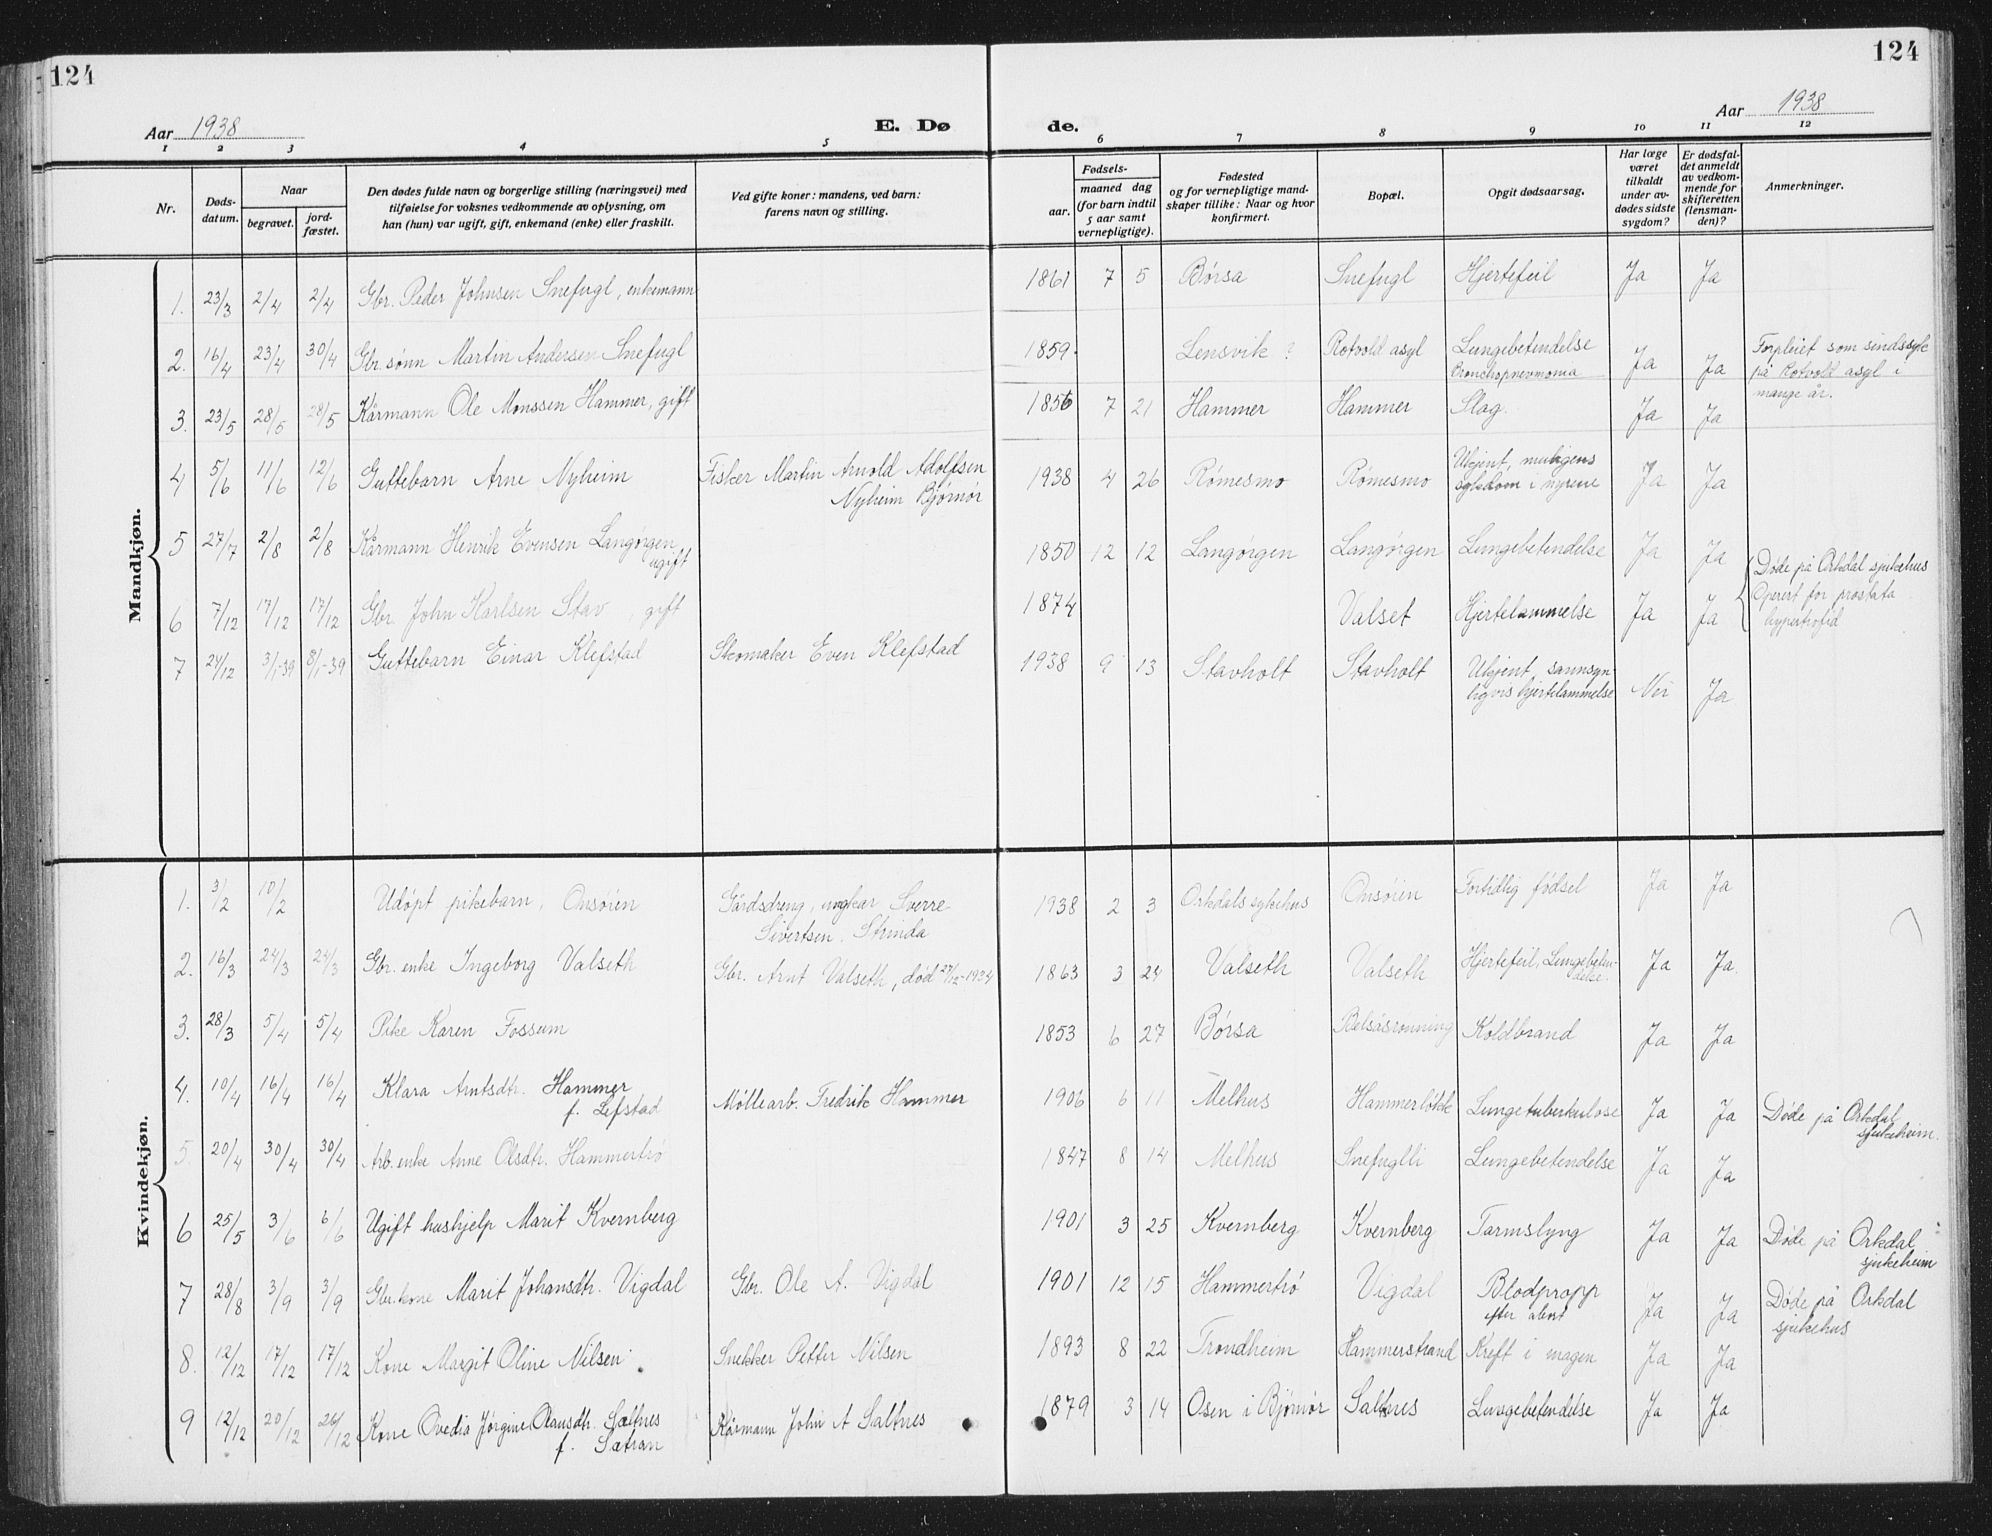 124
124
Aar 1938
E. Dø
de.
Aar 1938
1 2 3 4 5 6 7 8 9 10 11 12
Nr.
Døds-
datum.
Naar
begravet.
jord-
fæstet.
Den dødes fulde navn og borgerlige stilling (næringsvei) med
tilføielse for voksnes vedkommende av oplysning, om
han (hun) var ugift, gift, enkemand (enke) eller fraskilt.
Ved gifte koner: mandens, ved barn:
farens navn og stilling.
Fødsels-
aar.
maaned dag
(for barn indtil
5 aar samt
vernepligtige).
Fødested
og for vernepligtige mand-
skaper tillike: Naar og hvor
konfirmert.
Bopæl.
Opgit dødsaarsag.
Har læge
været
tilkaldt
under av-
dødes sidste
sygdom?
Er dødsfal-
det anmeldt
av vedkom-
mende for
skifteretten
(lensman-
den)?
Anmerkninger.
Mandkjøn.
1. 23/3 2/4 2/4 Gbr. Peder Johnsen Snefugl, enkemann 1861 7 5 Børsa Snefugl Hjertefeil Ja Ja
2. 16/4 23/4 30/4 Gbr. sønn Martin Andersen Snefugl 1859 Lensvik ? Rotvold asyl Lungebetendelse Ja Ja Forpleiet som sindssyk
Bronchopnevmonia på Rotvold asyl i
mange år.
3. 23/5 28/5 28/5 Kårmann Ole Monssen Hammer, gift 1856 7 21 Hammer Hammer Slag. Ja Ja
4 5/6 11/6 12/6 Guttebarn Arne Nyheim Fisker Martin Arnold Adolfsen 1938 4 26 Rømesmo Rømesmo Ukjent, muligens Ja Ja
Nyheim Bjørnør sykdom i nyrene
5 27/7 2/8 2/8 Kårmann Henrik Evensen Langørgen 1850 12 12 Langørgen Langørgen Lungebetendelse Ja Ja
ugift
6 7/12 17/12 17/12 Gbr. John Karlsen Stav, gift 1874 Valset Hjertelammelse Ja Ja Døde på Orkdal sjukehus
Operert for prostata
hypertrofid
7 24/12 3/1-39 8/1-39 Guttebarn Einar Klefstad Skomaker Even Klefstad 1938 9 13 Stavholt Stavholt Ukjent, sannsyn- Nei Ja
ligvis hjertelammelse
Kvindekjøn.
1. 3/2 10/2 Udøpt pikebarn, Onsøien Gårdsdreng, ungkar Sverre 1938 2 3 Orkdals sykehus Onsøien Fortidlig fødsel Ja Ja
Sivertsen. Strinda
2. 16/3 24/3 24/3 Gbr. enke Ingeborg Valseth Gbr. Arnt Valseth, død 27/12-1934 1863 3 24 Valseth Valseth Hjertefeil, Lungebeten- Ja Ja.
delse.
3. 28/3 5/4 5/4 Pike Karen Fossum 1853 6 27 Børsa Belsåsrønning Koldbrand Ja Ja
4. 10/4 16/4 16/4 Klara Arntsdtr. Hammer Møllearb. Fredrik Hammer 1906 6 11 Melhus Hammerløkk Lungetuberkulose Ja Ja Døde på Orkdal
f. Lefstad sjukeheim.
5. 20/4 30/4 30/4 Arb. enke Anne Olsdtr. Hammertrø 1847 8 14 Melhus Snefuglli Lungebetendelse Ja Ja
6 25/5 3/6 6/6 Ugift hushjelp Marit Kvernberg 1901 3 25 Kvernberg Kvernberg Tarmslyng Ja Ja Døde på Orkdal
sjukeheim
7 28/8 3/9 3/9 Gbr. kone Marit Johansdtr. Vigdal Gbr. Ole A. Vigdal 1901 12 15 Hammertrø Vigdal Blodpropp Ja Ja Døde på Orkdal
efter abort sjukehus
8. 12/12 17/12 17/12 Kone Margit Oline Nilsen Snekker Petter Nilsen 1893 8 22 Trondheim Hammerstrand Kreft i magen Ja Ja
9 12/12 20/12 20/12 Kone Ovedia Jørgine Olausdtr. Saltnes Kårmann John A Saltnes 1879 3 14 Osen i Bjørnør Saltnes Lungebetendelse Ja Ja
f. Sætran